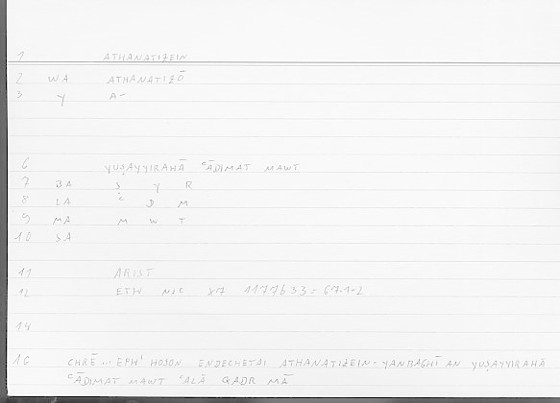 1 ATHANATIZEIN
2 WA ATHANATIZŌ
3 Y A-
6 YUṢAYYIRAHĀ ʿĀDIMAT MAWT
7 BA Ṣ Y R
8 LA ʿ D M
9 MA M W T
10 SA
11 ARIST
12 ETH NIC X7 1177B33 = 67.1-2
14
16 CHRĒ ... EPH' HOSON ENDECHETAI ATHANATIZEIN = YANBAGHĪ AN YUṢAYYIRAHĀ
ʿĀDIMAT MAWT ʿALĀ QADR MĀ